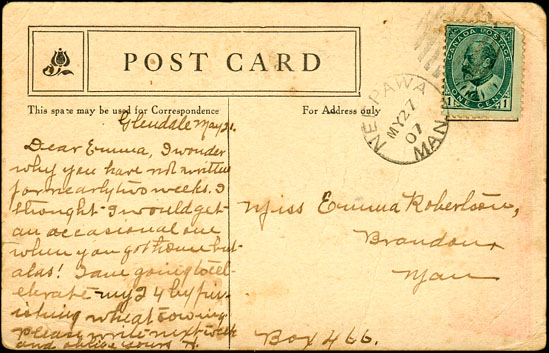 POST CARD
CANADA POSTAGE
ONE CENT
1 1
NEEPAWA
MY 27
07
MAN
This space may be used for Correspondence
For Address only
Glendale May 21.
Dear Emma, I wonder
why you have not written
for nearly two weeks. I
thought I would get
an occasional one
when you got home but
alas! I am going to cel-
ebrate my 24 by fin-
ishing wheat sowing
please write next week
and oblige yours
Miss Emma Robertson,
Brandon
Man
Box 466.